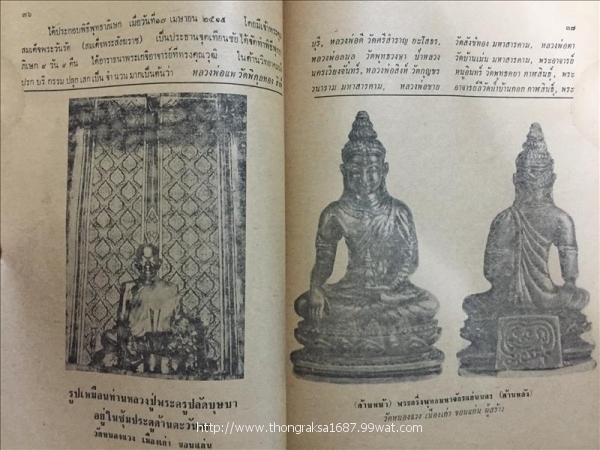 ๓๖
ได้ประกอบพิธีพุทธาภิเษก เมื่อวันที่๑๗ เมษายน ๒๕๑๕ โดยมีเจ้าพระคุณ
สมเด็จพระวันรัต (สมเด็จพระสังฆราช) เป็นประธานจุดเทียนชัย ได้จัดทำพิธีพุทธา
ภิเษก ๙ วัน ๙ คืน ได้อาราธนาพระเกจิอาจารย์ที่ทรงคุณวุฒิ ในด้านวิทยา
ปรก บริกรรม ปลุก เสก เป็น จำนวน มาก เป็นต้นว่า หลวงพ่อแพ วัดพิกุลทอง
รูปเหมือนท่านหลวงปู่พระครูปลัดบุษบา
อยู่ในซุ้มประตูด้านตะวัน
วัดหนองแวง เมืองเก่า ขอนแก่น
๓๗
บุรี, หลวงพ่อดี วัดศรีสำราญ ยะโสธร, วัดสังข์ทอง มหาสารคาม, หลวงพ่อตา
หลวงพ่อถนอ วัดพุทธวงษา ป่าหลวง วัดบ้านเม่น มหาสารคาม, พระอาจารย์
นครเวียงจันทร์, หลวงพ่อสิงห์ วัดกุญชร หนูอินทร์ วัดพุทธคยา กาฬสินธุ์, พระ
วนาราม มหาสารคาม, หลวงพ่อชาย อาจารย์ถวัด บ้านดอก กาฬสินธุ์, พระ
(ด้านหน้า) พระกริ่งพุทธมหาจักรแก่นนคร (ด้านหลัง)
วัดหนองแวง เมืองเก่า ขอนแก่น ผู้สร้าง
http://www.thongraksa1687.99wat.com/